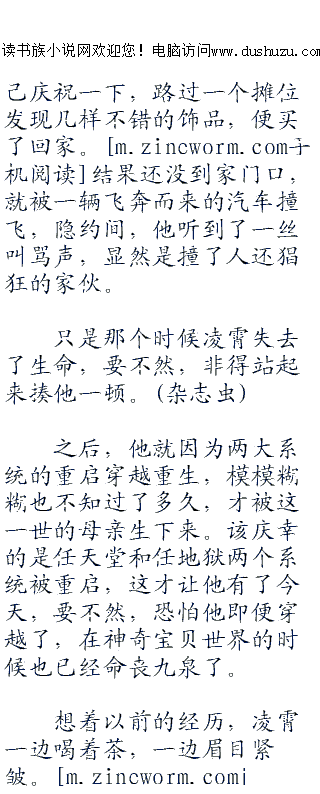 读书族小说网欢迎您！电脑访问www.dushuzu.com
己庆祝一下，路过一个摊位
发现几样不错的饰品，便买
了回家。[m.zincworm.com手
机阅读]结果还没到家门口，
就被一辆飞奔而来的汽车撞
飞，隐约间，他听到了一丝
叫骂声，显然是撞了人还猖
狂的家伙。
只是那个时候凌霄失去
了生命，要不然，非得站起
来揍他一顿。(杂志虫)
之后，他就因为两大系
统的重启穿越重生，模模糊
糊也不知过了多久，才被这
一世的母亲生下来。该庆幸
的是任天堂和任地狱两个系
统被重启，这才让他有了今
天，要不然，恐怕他即便穿
越了，在神奇宝贝世界的时
候也已经命丧九泉了。
想着以前的经历，凌霄
一边喝着茶，一边眉目紧
皱。[m.zincworm.com]